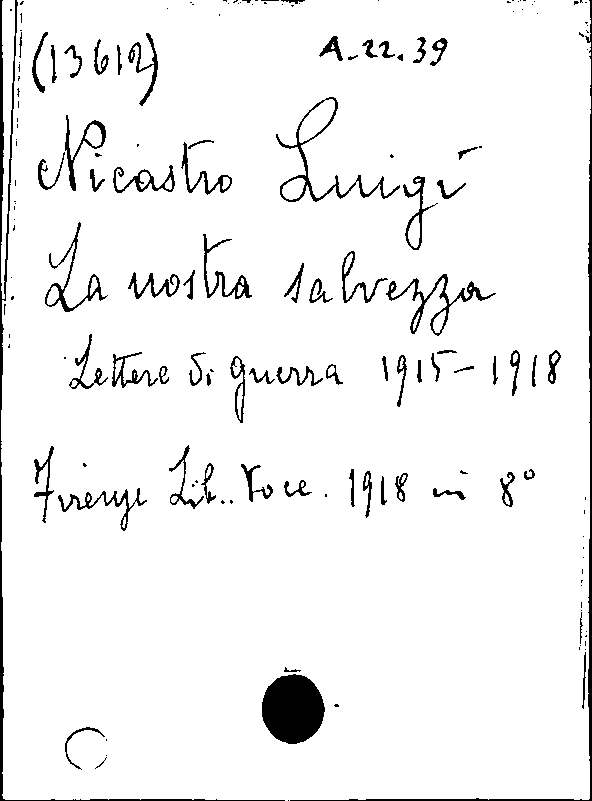 (13612) A.22.39
Nicastro Luigi
La nostra salvezza
Lettere di guerra 1915-1918
Firenze Lib.. Voce. 1918 in 8°